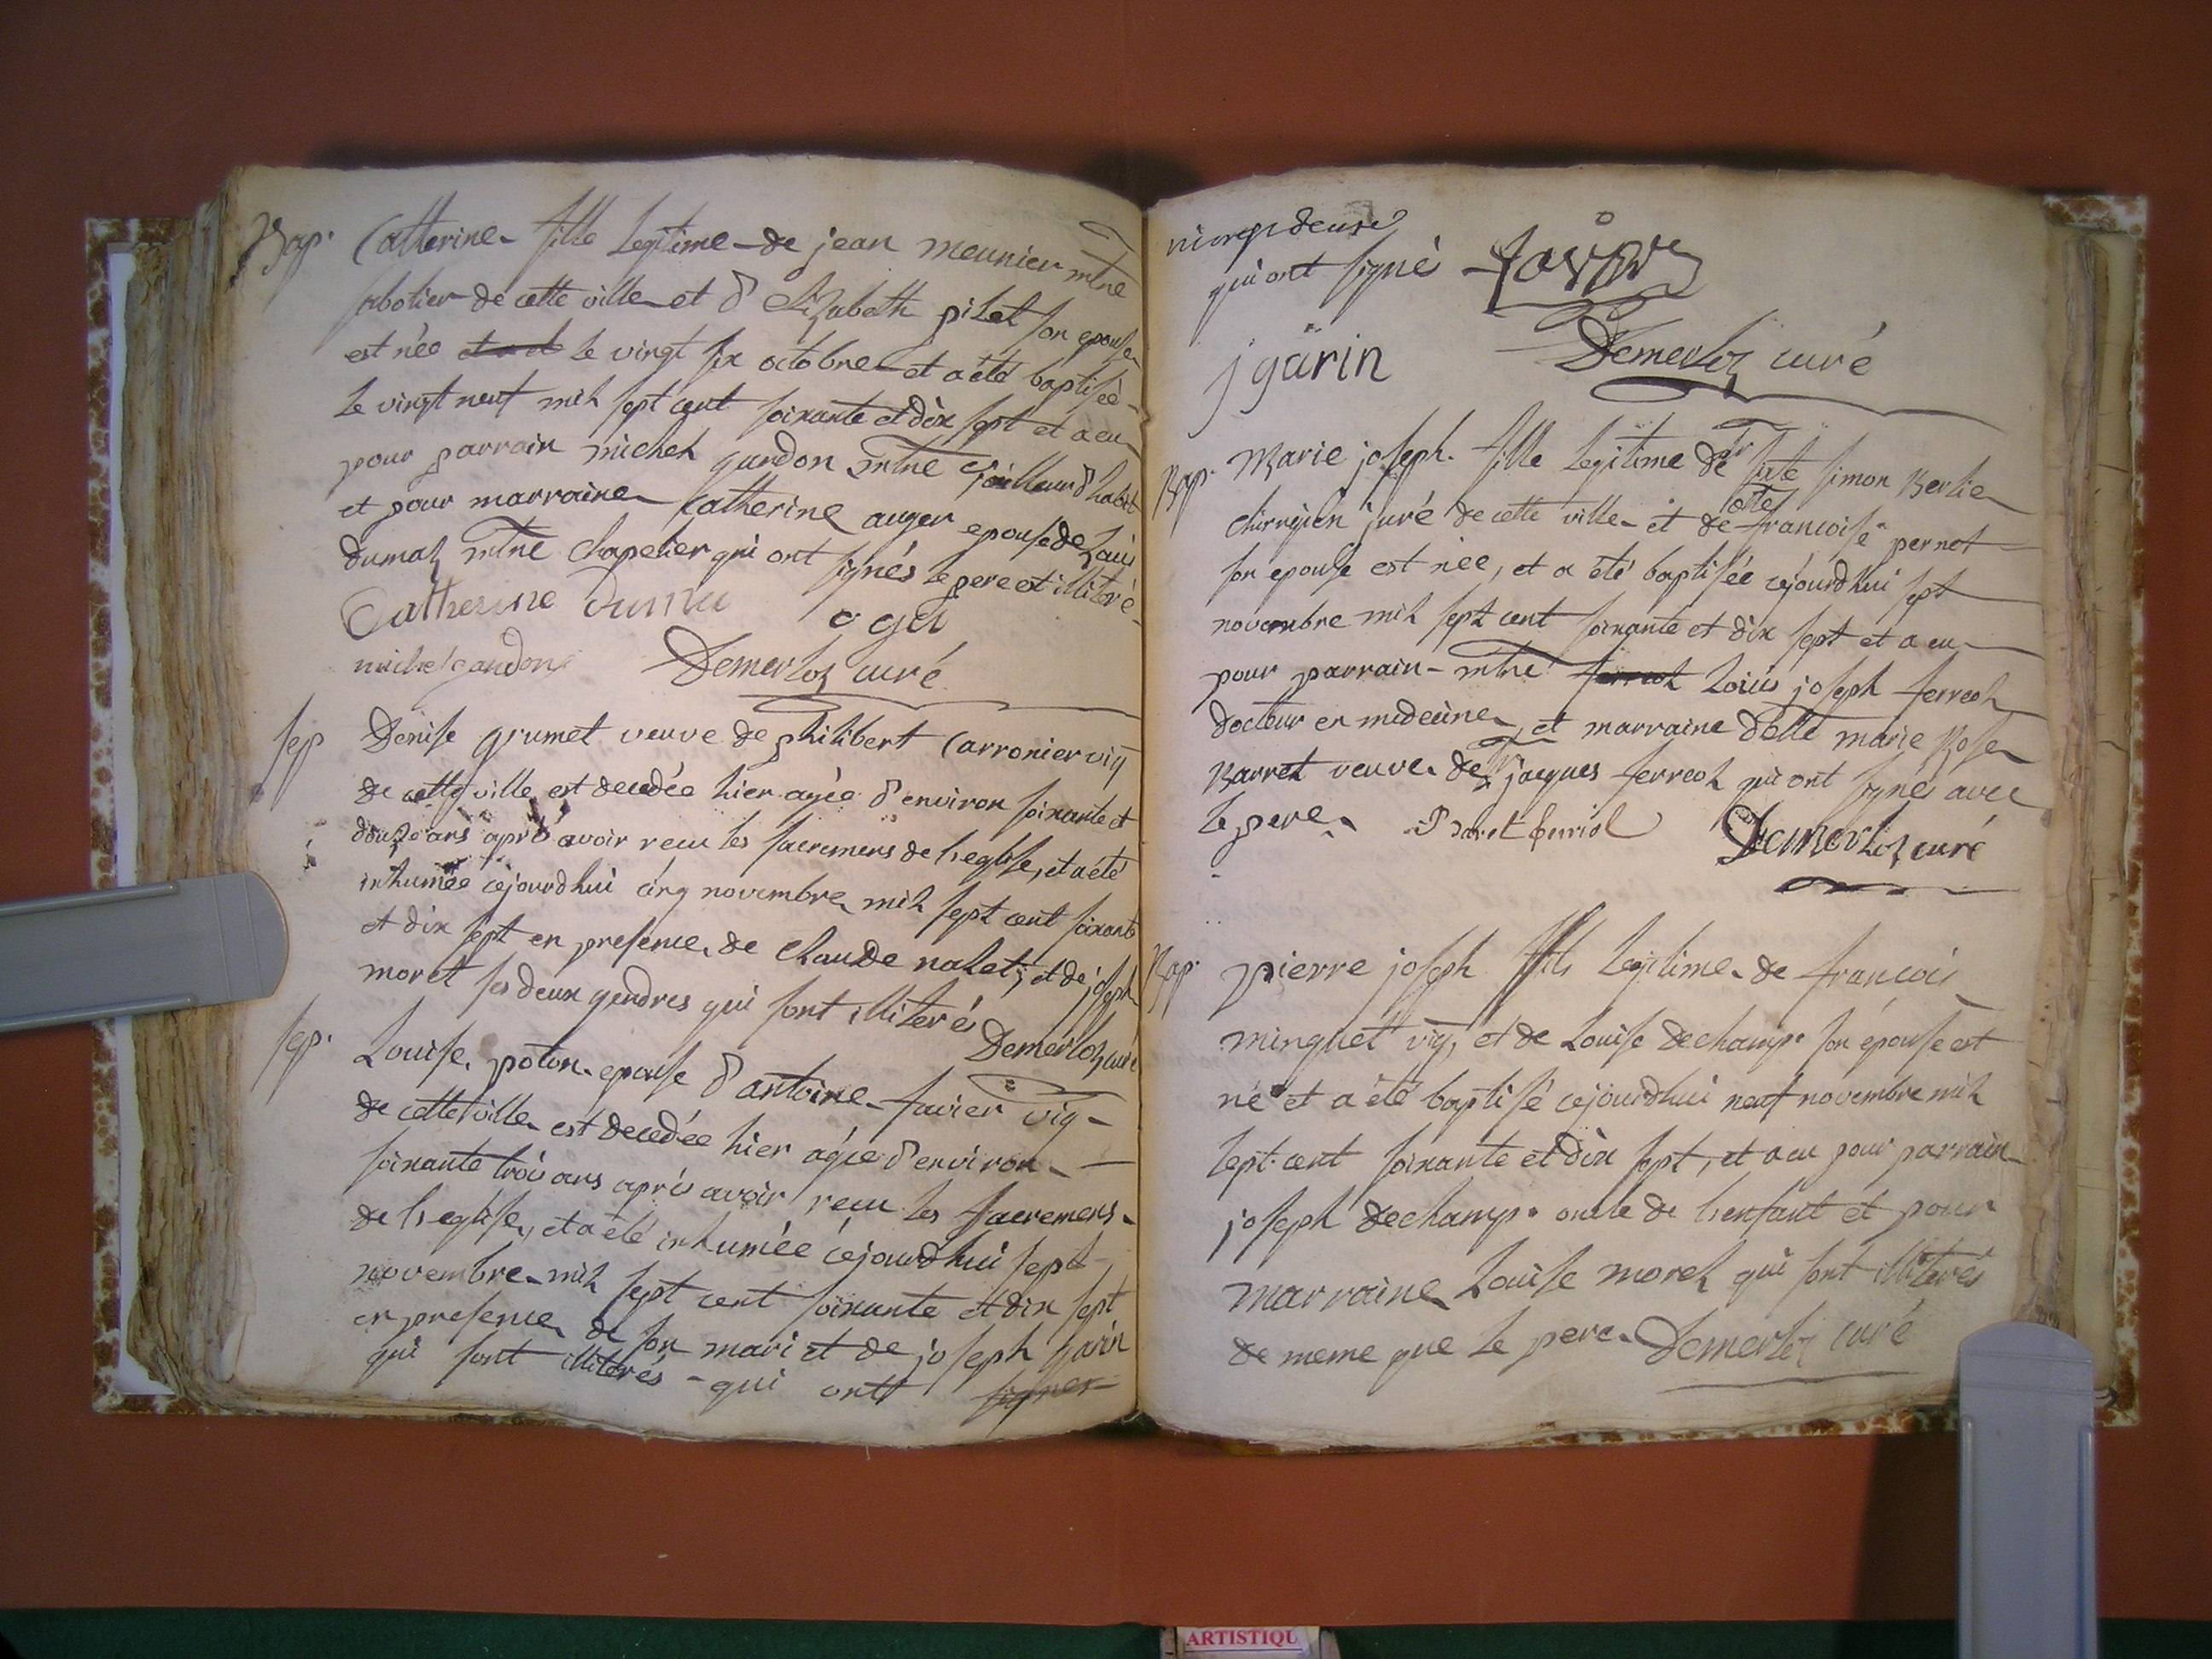 Bap. Catterine fille legitime de jean meunier mtre
sabotier de cette ville et d'Elizabeth pilet son epouse
est née et a et le vingt six octobre et a été baptisée
le vingt neuf mil sept cent soixante et dix sept et a eu
pour parrain michel gandon mtre tailleur d'habit
et pour marraine Catherine auger epouse de Louis
dumas mtre chapelier qui ont signés le pere est illiteré
Catherine
michel gandon Demerloz curé
sep Denise grumet veuve de philibert Carronier vig
de cette ville est decedée hier agée d'environ soixante et
douze ans après avoir recu les sacremens de l'eglise, et a été
inhumée cejourdhui cinq novembre mil sept cent soixante
et dix sept en presence de Claude nalet, et de joseph
moret ses deux gendres qui sont illiterés
Demerloz curé
sep. Louise poton epouse d'antoine favier vig
de cette ville est decedée hier agée d'environ
soixante trois ans après avoir recu les sacremens
de l'eglise, et a été inhumée cejourdhui sept
novembre mil sept cent soixante et dix sept
en presence de son mari et de joseph garin
qui sont illiterés - qui ontt signer
qui ont signé favier
j garin Demerloz curé
Bap. Marie joseph fille legitime de sr sixte simon Berlie
chirurgien juré de cette ville et de dlle francoise pernet
son epouse est née, et a été baptisée cejourdhui sept
novembre mil sept cent soixante et dix sept et a eu
pour parrain mtre ferreol Loüis joseph ferreol
docteur en medecine, et marraine dlle marie Rose
Barret veuve de sr jacques ferreol qui ont signés avec
le pere. Demerloz curé
Bap. pierre joseph fils legitime de francois
minguet vig, et de Louise dechamp son épouse est
né et a été baptisé cejourdhui neuf novembre mil
sept cent soixante et dix sept, et a eu pour parrain
joseph dechamp oncle de l'enfant et pour
marraine Louise morel qui sont illiterés
de meme que le pere. Demerloz curé
ARTISTIQU